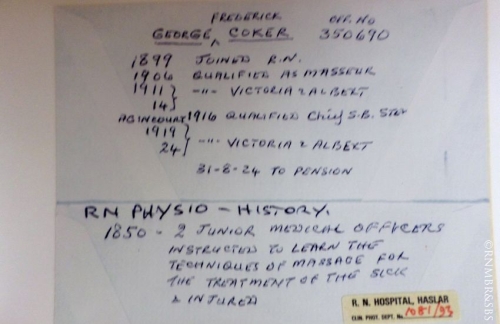 FREDERICK OFF. NO
GEORGE, COKER 350690
1899 JOINED R.N.
1906 QUALIFIED AS MASSEUR
1911 } -"- VICTORIA & ALBERT
14 }
AGINCOURT 1916 QUALIFIED Chief S.B. Std
1919 }
24 } -"- VICTORIA & ALBERT
31-8-24 TO PENSION
RN PHYSIO - HISTORY.
1850 - 2 JUNIOR MEDICAL OFFICERS
INSTRUCTED TO LEARN THE
TECHNIQUES OF MASSAGE FOR
THE TREATMENT OF THE SICK
& INJURED
R. N. HOSPITAL, HASLAR
CLIN. PHOT. DEPT. No. 1081/93
©RNMBR&SBS